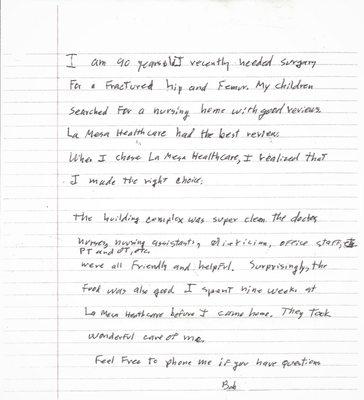 I am 90 years old I recently needed surgery
For a Fractured hip and Femur. My children
searched For a nursing home with good reviews.
La Mesa Healthcare had the best review.
When I chose La Mesa Healthcare, I realized that
I made the right choice.
The building complex was super clean. The doctor,
nurses, nursing assistants, dietician, office staff,
PT and OT, etc.
were all Friendly and helpful. Surprisingly, the
Food was also good I spent nine weeks at
La Mesa Healthcare before I came home. They took
wonderful care of me.
Feel Free to phone me if you have questions
Bob